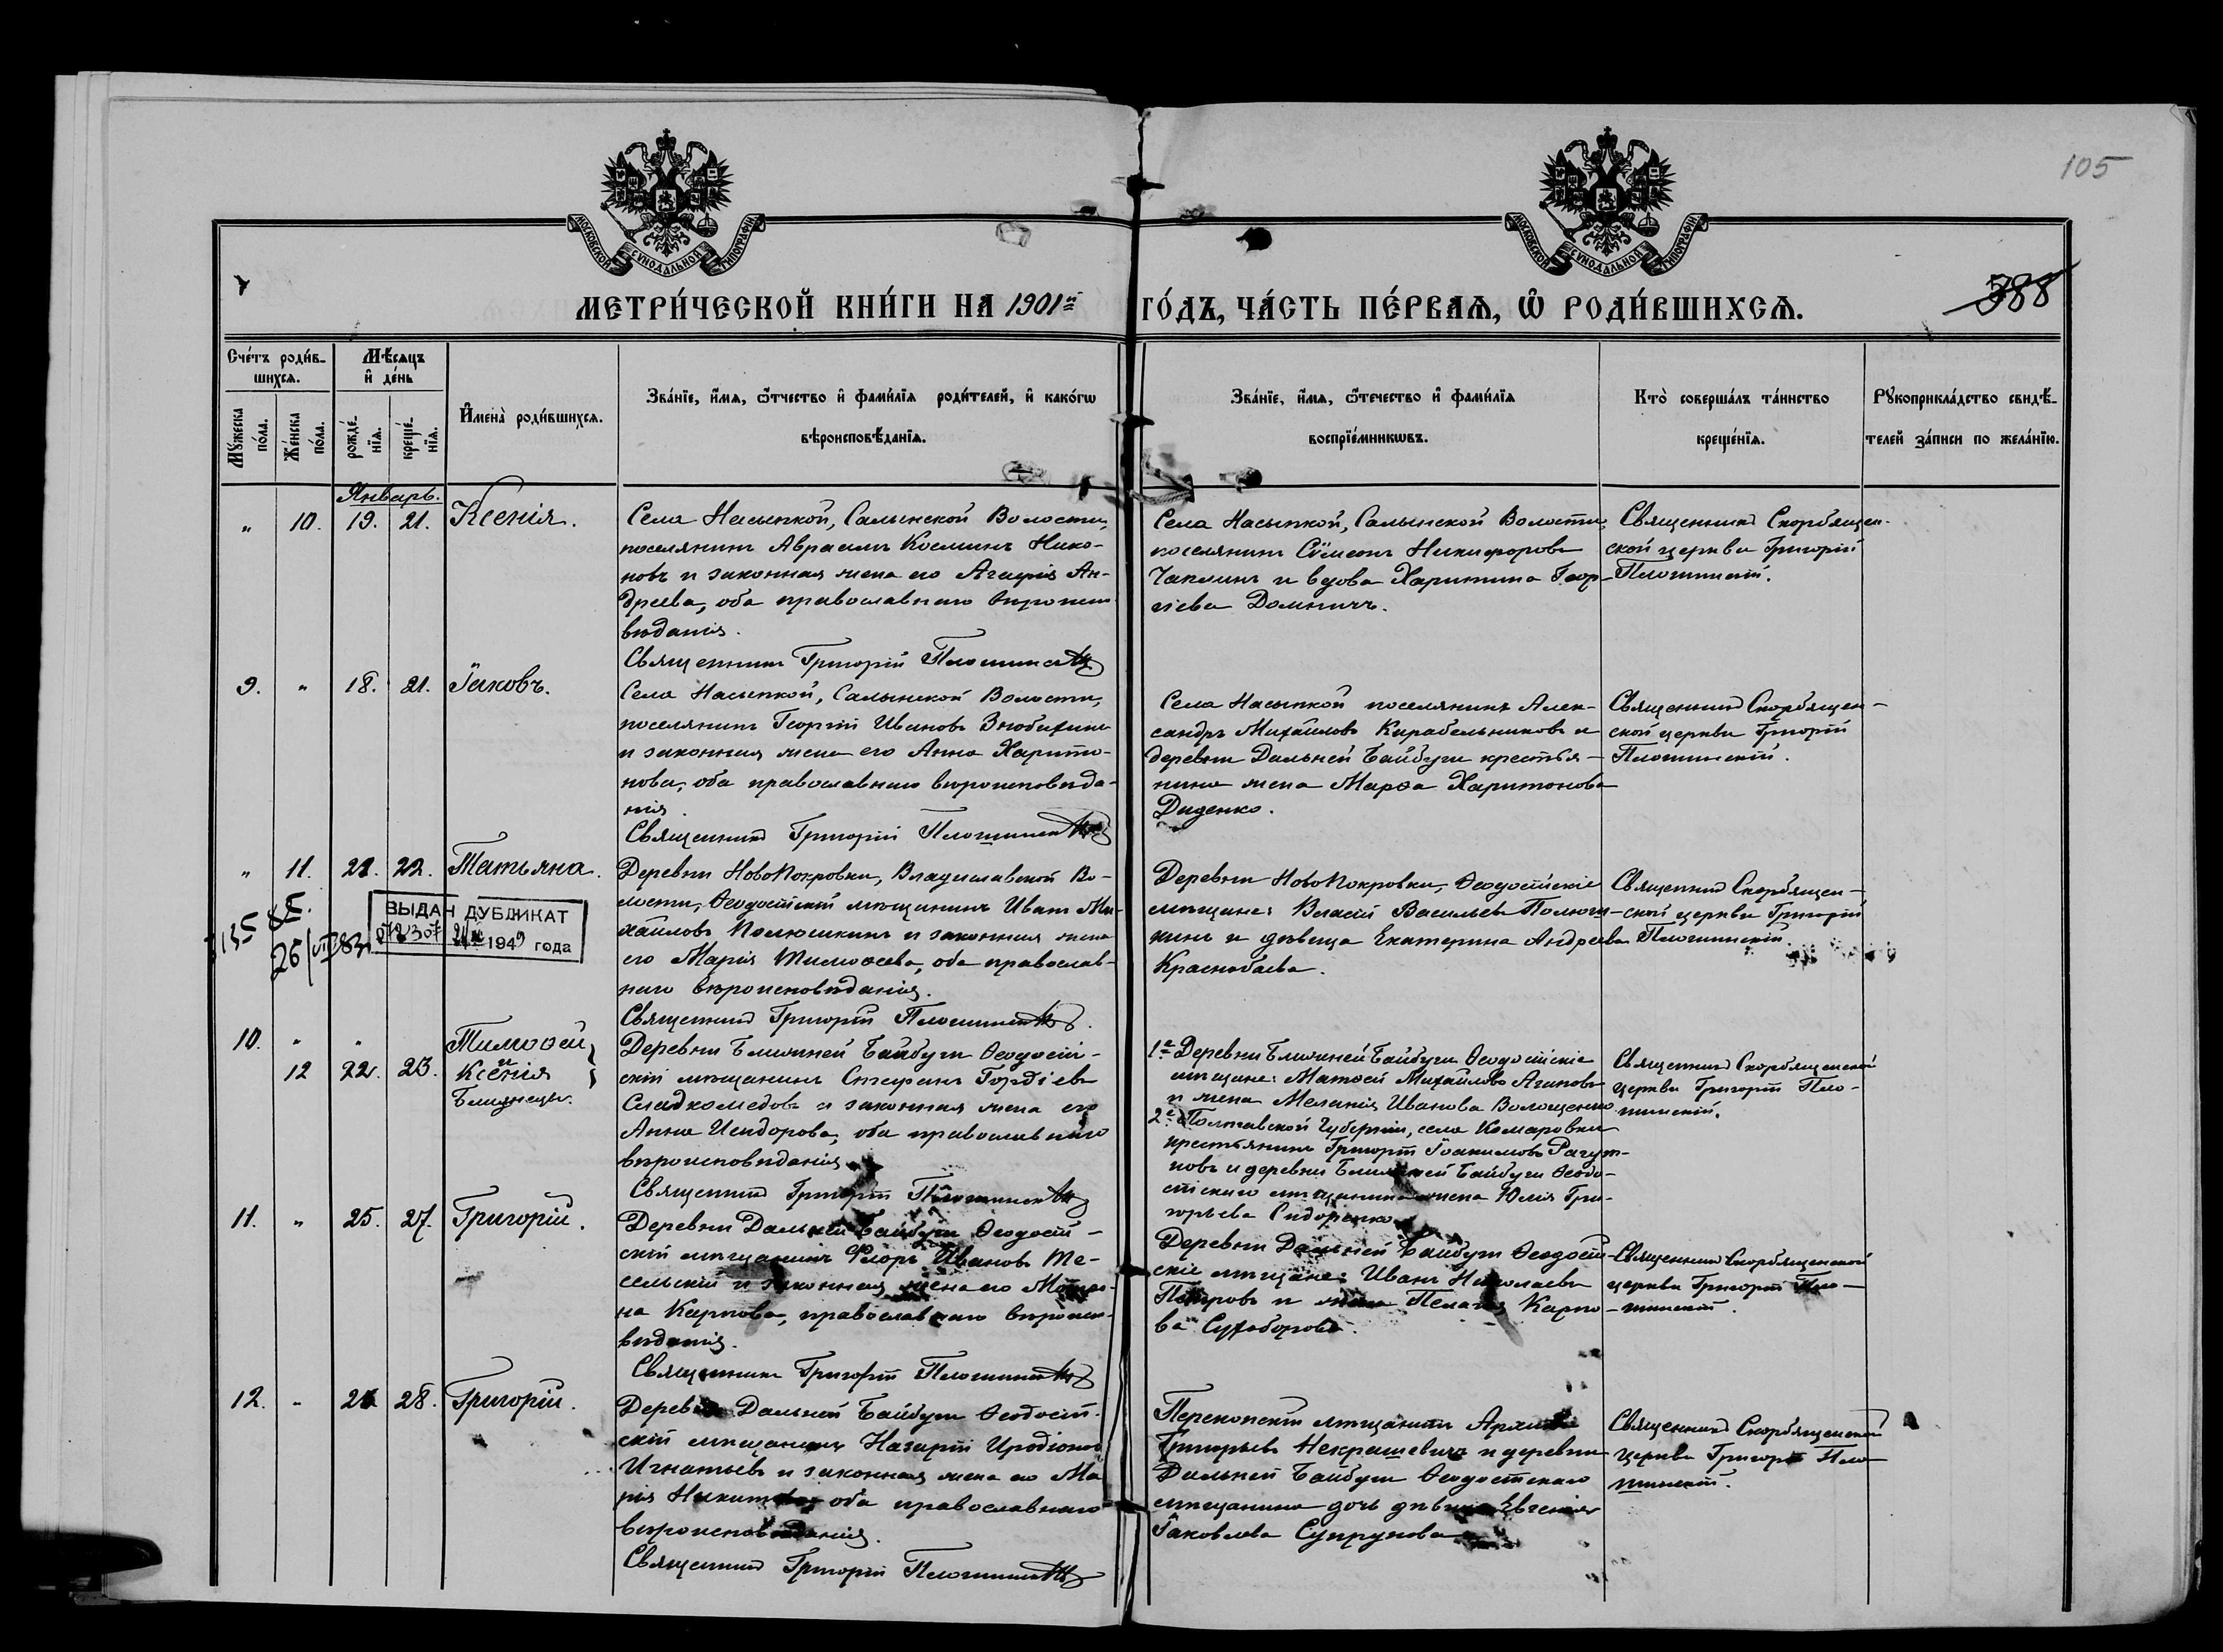 105
МОСКОВСКОЙ СѴНОДАЛЬНОЙ ТИПОГРАФІИ
МОСКОВСКОЙ СѴНОДАЛЬНОЙ ТИПОГРАФІИ
388
МЕТРИ́ЧЕСКОЙ КНИ́ГИ НА 1901й ГО́ДЪ, ЧА́СТЬ ПЕ́РВАѦ, Ѡ РОДИ́ВШИХСѦ.
Сче́тъ роди́в-
шихсѧ.
Мꙋ́жеска по́ла.
Же́нска по́ла.
Мѣ́сѧцъ
и҆ де́нь
рожде́-нїѧ.
креще́-нїѧ.
И҆мена̀ роди́вшихсѧ.
Зва́нїе, и҆́мѧ, ѻ҆́тчество и҆ фами́лїѧ роди́телей, и҆ како́гѡ
вѣроисповѣ́данїѧ.
Зва́нїе, и҆́мѧ, ѻ҆те́чество и҆ фами́лїѧ
воспрїе́мникѡвъ.
Кто̀ соверша́лъ та́инство
креще́нїѧ.
Рꙋкоприкла́дство свидѣ́-
телей за́писи по жела́нїю.
Январь.
" 10. 19. 21. Ксенія.
Села Насыпкой, Салынской Волости,
поселянинъ Авраамъ Косминъ Нико-
новъ и законная жена его Агафія Ан-
дреева, оба православнаго вѣроиспо-
вѣданія.
Священникъ Григорій Плошинскій
Села Насыпкой, Салынской Волости,
поселянинъ Сѵмеонъ Никифоровъ
Чаплинъ и вдова Харитина Геор-
гіева Домничъ.
Священникъ Скорбящен-
ской церкви Григорій
Плошинскій.
9. " 18. 21. Іаковъ.
Села Насыпкой, Салынской Волости,
поселянинъ Георгій Ивановъ
и законная жена его Анна Харито-
нова, оба православнаго вѣроисповѣда-
нія.
Священникъ Григорій Плошинскій
Села Насыпкой поселянинъ Алек-
сандръ Михайловъ Карабельниковъ и
деревни Дальней Байбуги крестья-
нина жена Марѳа Харитонова
Диденко.
Священникъ Скорбящен-
ской церкви Григорій
Плошинскій.
" 11. 21. 22. Татьяна.
Деревни НовоПокровки, Владиславской Во-
лости, Ѳеодосійскій мѣщанинъ Иванъ Ми-
хайловъ Полюшкинъ и законная жена
его Марія Тимоѳеева, оба православ-
наго вѣроисповѣданія.
Священникъ Григорій Плошинскій.
Деревни НовоПокровки, Ѳеодосійскіе
мѣщане: Василій Васильевъ Полюш-
кинъ и дѣвица Екатерина Андреева
Краснобаева.
Священникъ Скорбящен-
ской церкви Григорій
Плошинскій.
ВЫДАН ДУБЛИКАТ
1949 года
10. " " Тимоѳей
и
12 22. 23. Ксенія
Близнецы.
Деревни Ближней Байбуги Ѳеодосій-
скій мѣщанинъ Стефанъ Гордіевъ
Сладкомедовъ и законная жена его
Анна Исидорова, оба православнаго
вѣроисповѣданія.
Священникъ Григорій Плошинскій
1е Деревни Ближней Байбуги Ѳеодосійскіе
мѣщане: Матѳей Михайловъ Агаповъ
и жена Меланія Иванова Волощенко
2е Полтавской Губерніи, села Комаровки
крестьянинъ Григорій Іоакимовъ
новъ и деревни Ближней Байбуги Ѳеодо-
сійскаго мѣщанина жена Юлія Гри-
горьева Сидоренко.
Священникъ Скорбященской
церкви Григорій Пло-
шинскій.
11. " 25. 27. Григорій.
Деревни Дальней Байбуги Ѳеодосій-
скій мѣщанинъ Флоръ Ивановъ Те-
сельскій и законная жена его Матро-
на Карпова, православнаго вѣроиспо-
вѣданія.
Священникъ Григорій Плошинскій
Деревни Дальней Байбуги Ѳеодосій-
скіе мѣщане: Иванъ Николаевъ
Петровъ и жена Пелагія Карпо-
ва Сухоборова.
Священникъ Скорбященской
церкви Григорій Пло-
шинскій.
12. " 28. Григорій.
Деревни Дальней Байбуги Ѳеодосій-
скій мѣщанинъ Назарій Иродіоновъ
Игнатьевъ и законная жена его Ма-
рія Никитова, оба православнаго
вѣроисповѣданія.
Священникъ Григорій Плошинскій
Перекопскій мѣщанинъ
Григорьевъ Некрашевичъ и деревни
Дальней Байбуги Ѳеодосійскаго
мѣщанина дочь дѣвица Евгенія
Іаковлева Супрунова.
Священникъ Скорбященской
церкви Григорій Пло-
шинскій.